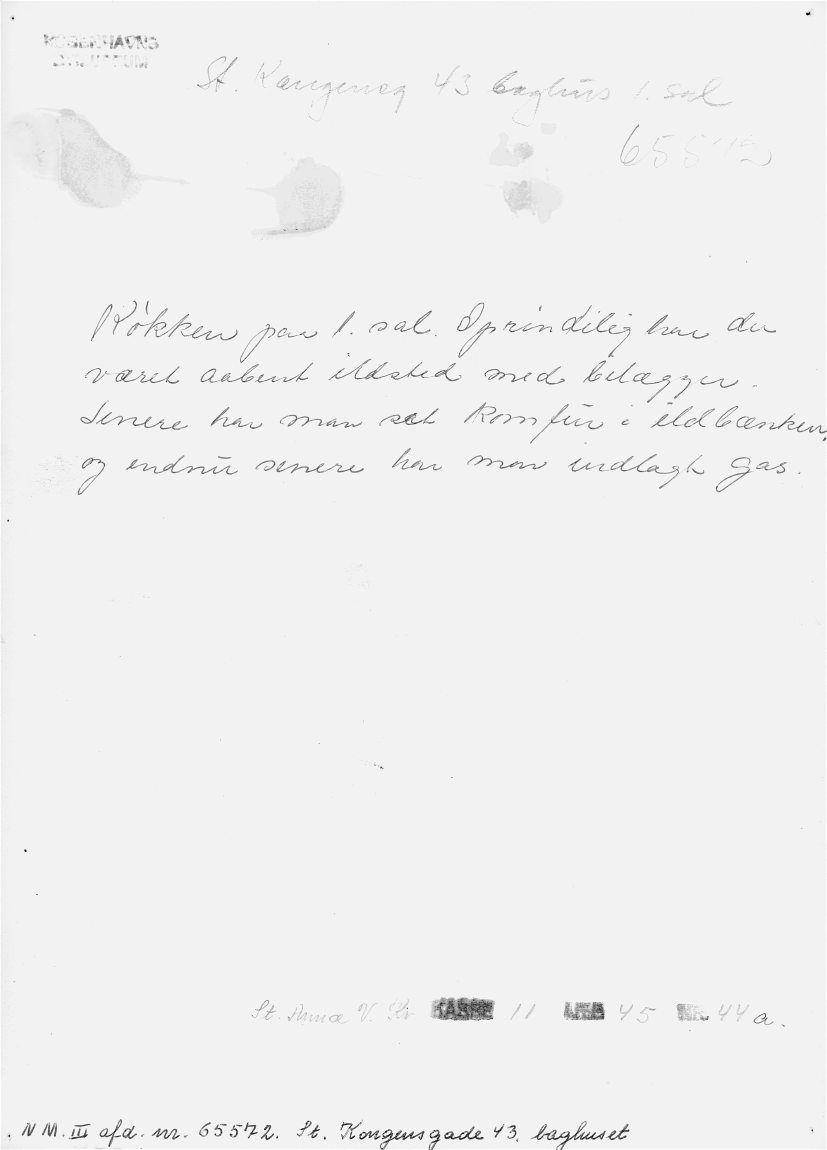 KØBENHAVNS
BYMUSEUM
St. Kongensg 43 baghus 1. sal
65572
Køkken paa 1. sal. Oprindilig har der
været aabent ildsted med belægger.
Senere har man sat komfur i ildbænken,
og endnu senere har man indlagt gas.
St. Annæ V. Kv KASSE 11 LÆG 45 NR. 44 a.
N M. III afd. nr. 65572. St. Kongensgade 43, baghuset